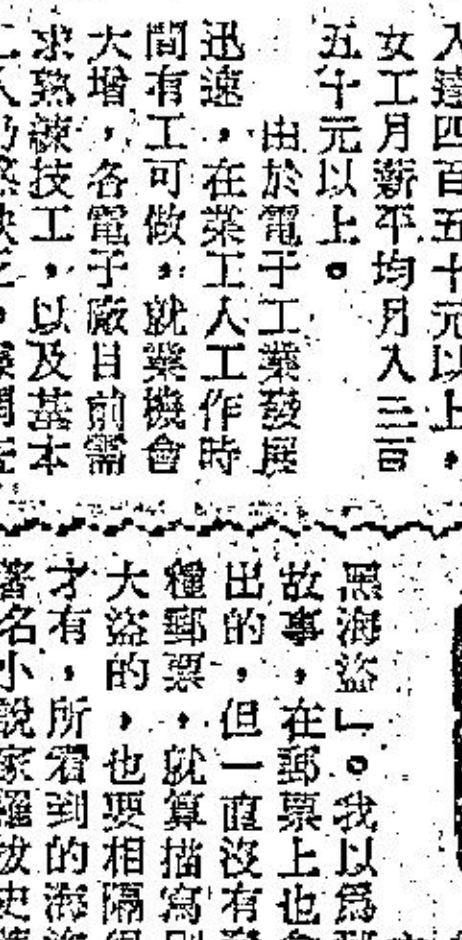 入達四百五十元以上，
女工月薪平均月入三百
五十元以上。
由於電子工業發展
迅速，在業工人工作時
間有工可做，就業機會
大增，各電子廠目前需
求熟練技工，以及基本
黑海盜」。我以爲
故事，在郵票上也
出的，但一直沒有
種郵票，就算描寫
大盜的，也要相隔
才有，所看到的海
著名小說家羅拔史